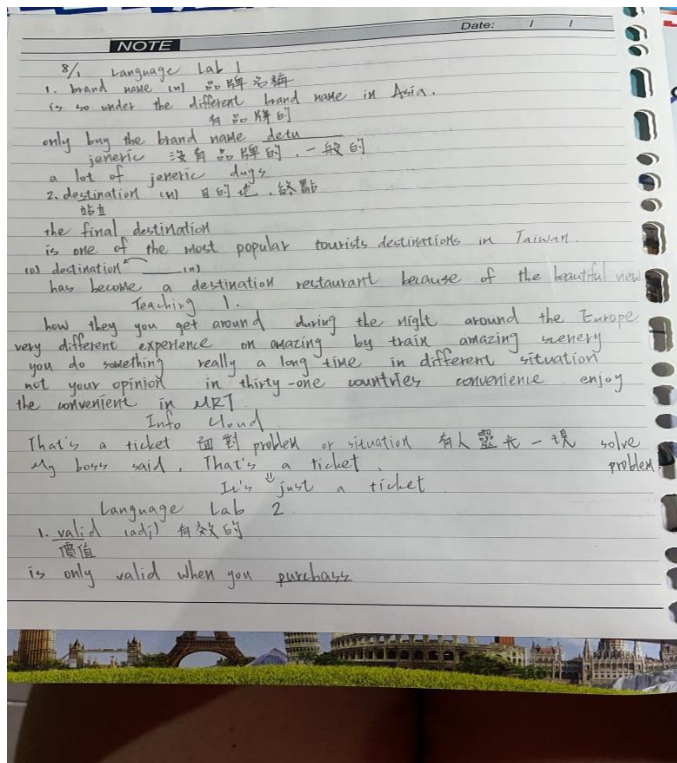 Date: / /
NOTE
8/1 Language Lab 1
1. brand name (n) 品牌名稱
is so under the different brand name in Asia.
有品牌的
only buy the brand name detu
jeneric 沒有品牌的.一般的
a lot of jeneric dugs
2. destination (n) 目的地.終點
站
the final destination
is one of the most popular tourists destinations in Taiwan.
destination (n)
has become a destination restaurant because of the beautiful new
Teaching 1.
how they you get around during the night around the Europe
very different experience on amazing by train amazing scenery
you do something really a long time in different situation
not your opinion in thirty-one countries convenience enjoy
the convenient in MRT
Info Cloud
That's a ticket 面對 problem or situation 有人靈光一現 solve
My boss said, That's a ticket. problem
It's just a ticket
Language Lab 2
1. valid (adj) 有效的
價值
is only valid when you purchass